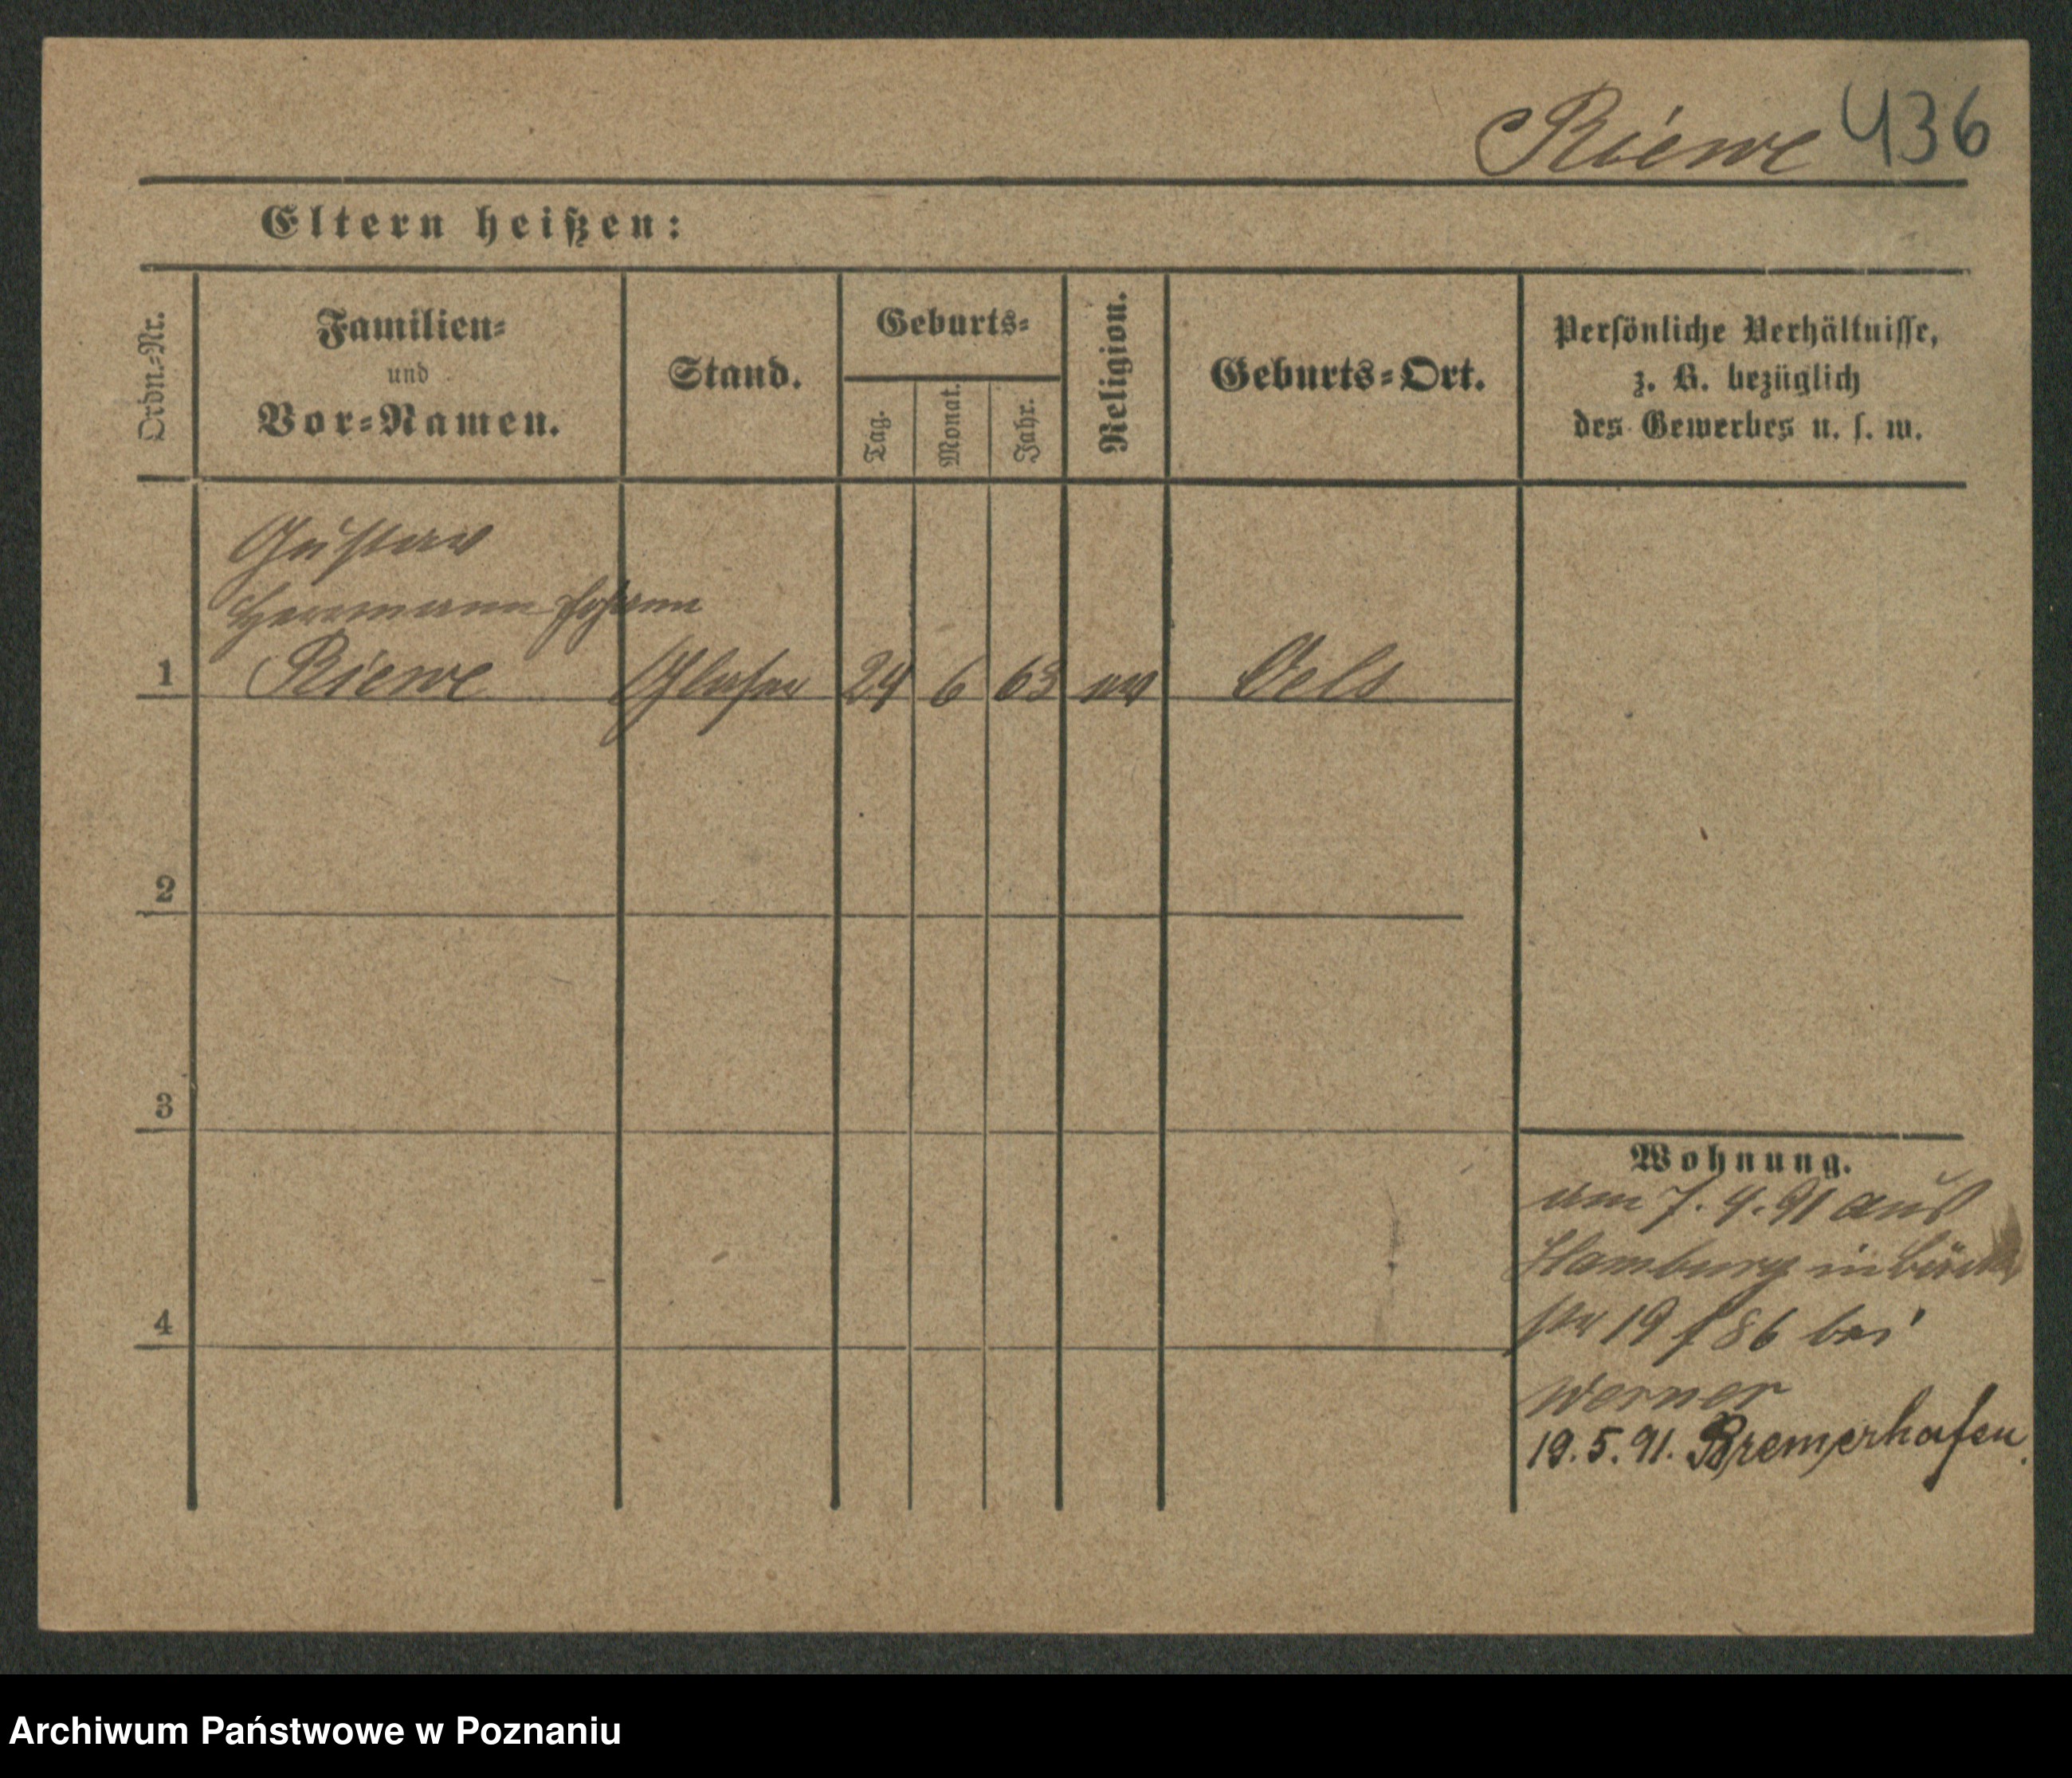 Riewe 436
Eltern heißen:
Ordn.-Nr.
Familien-
und
Vor-Namen.
Stand.
Geburts-
Tag.
Monat.
Jahr.
Religion.
Geburts-Ort.
Persönliche Verhältnisse,
z. B. bezüglich
des Gewerbes u. s. w.
Gustav
Herrmann Johann
1 Riewe Glaser 24 6 63 ev Oels
2
3
4
Wohnung.
am 7. 4. 91 aus
Hamburg in
19 / 86 bei
Werner
19. 5. 91. Bremerhafen.
Archiwum Państwowe w Poznaniu